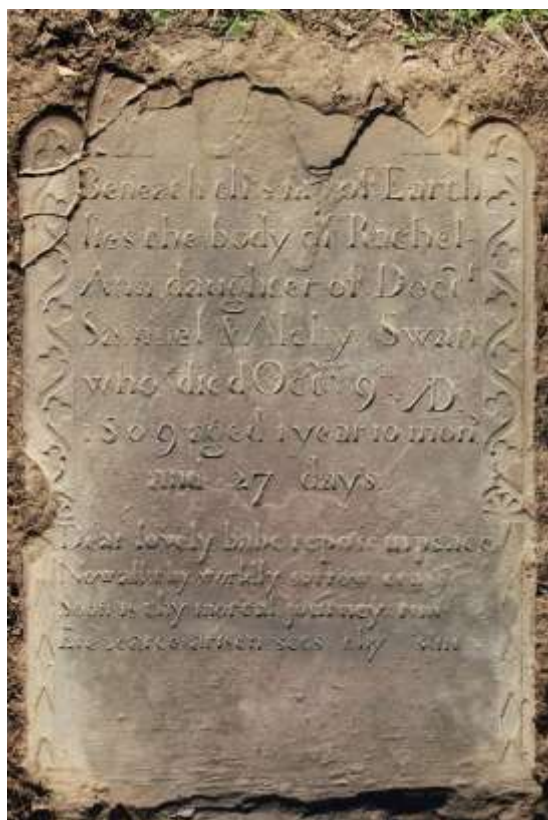 Beneath this of Earth
lies the body of Rachel-
Ann daughter of Doct.r
Samuel & Swan
who died Oct. 9th AD.
1809 aged 1 year 10 mon
and 27 days.
Dear lovely babe repose in peace
Now all thy worldly sorrow cease
Soon is thy mortal journey run
Ere scarce arisen sets thy sun